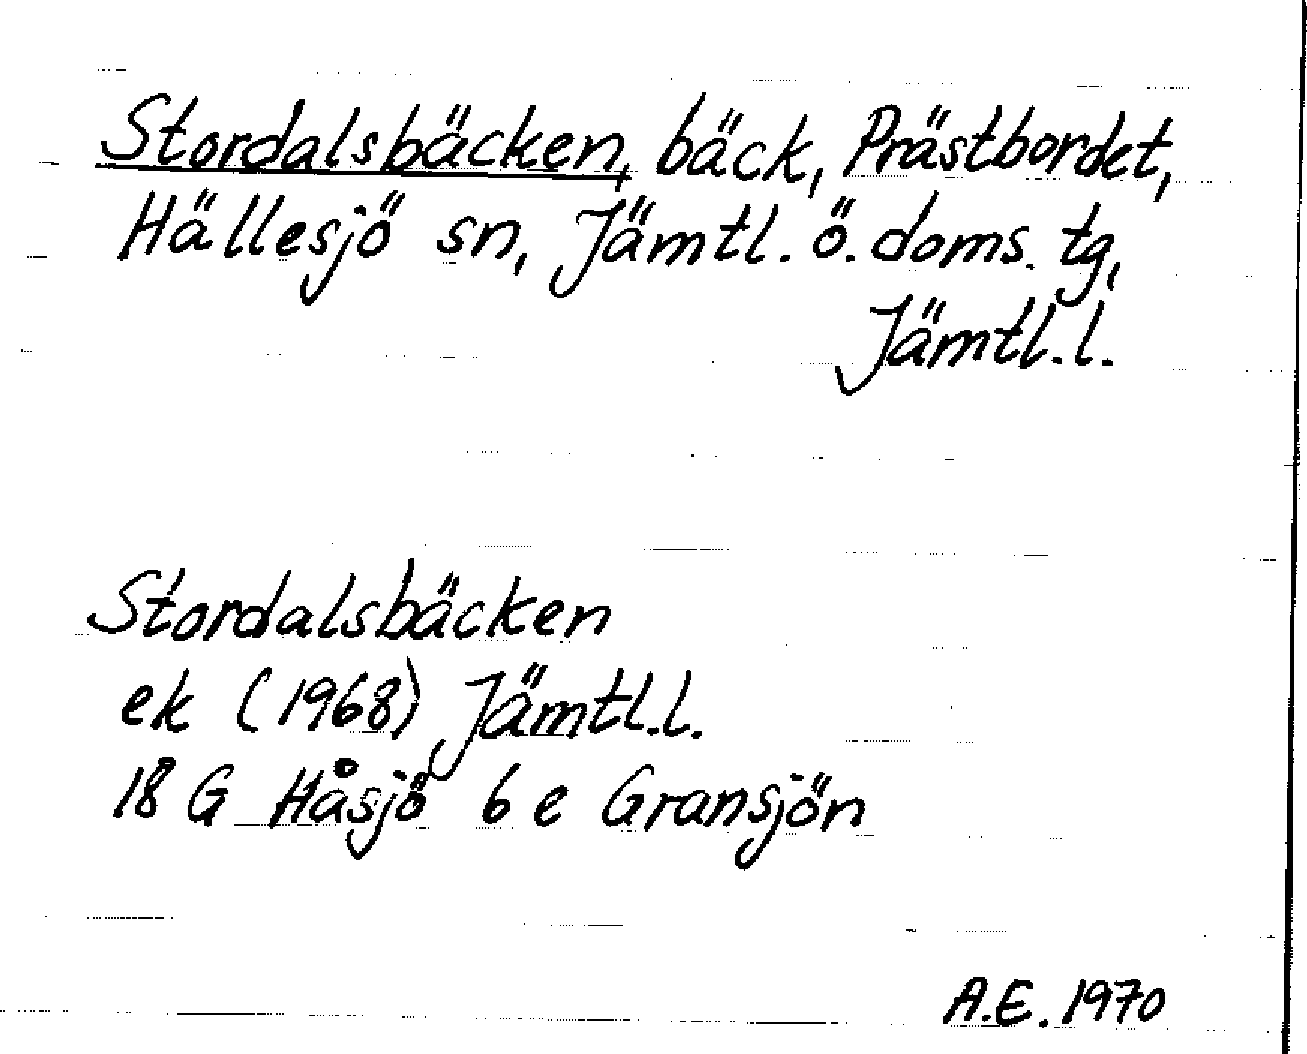 Stordalsbäcken, bäck, Prästbordet,
Hällesjö sn, Jämtl. ö. doms. tg,
Jämtl.l.
Stordalsbäcken
ek (1968) Jämtl.l.
18 G Håsjö 6 e Gransjön
A.E. 1970